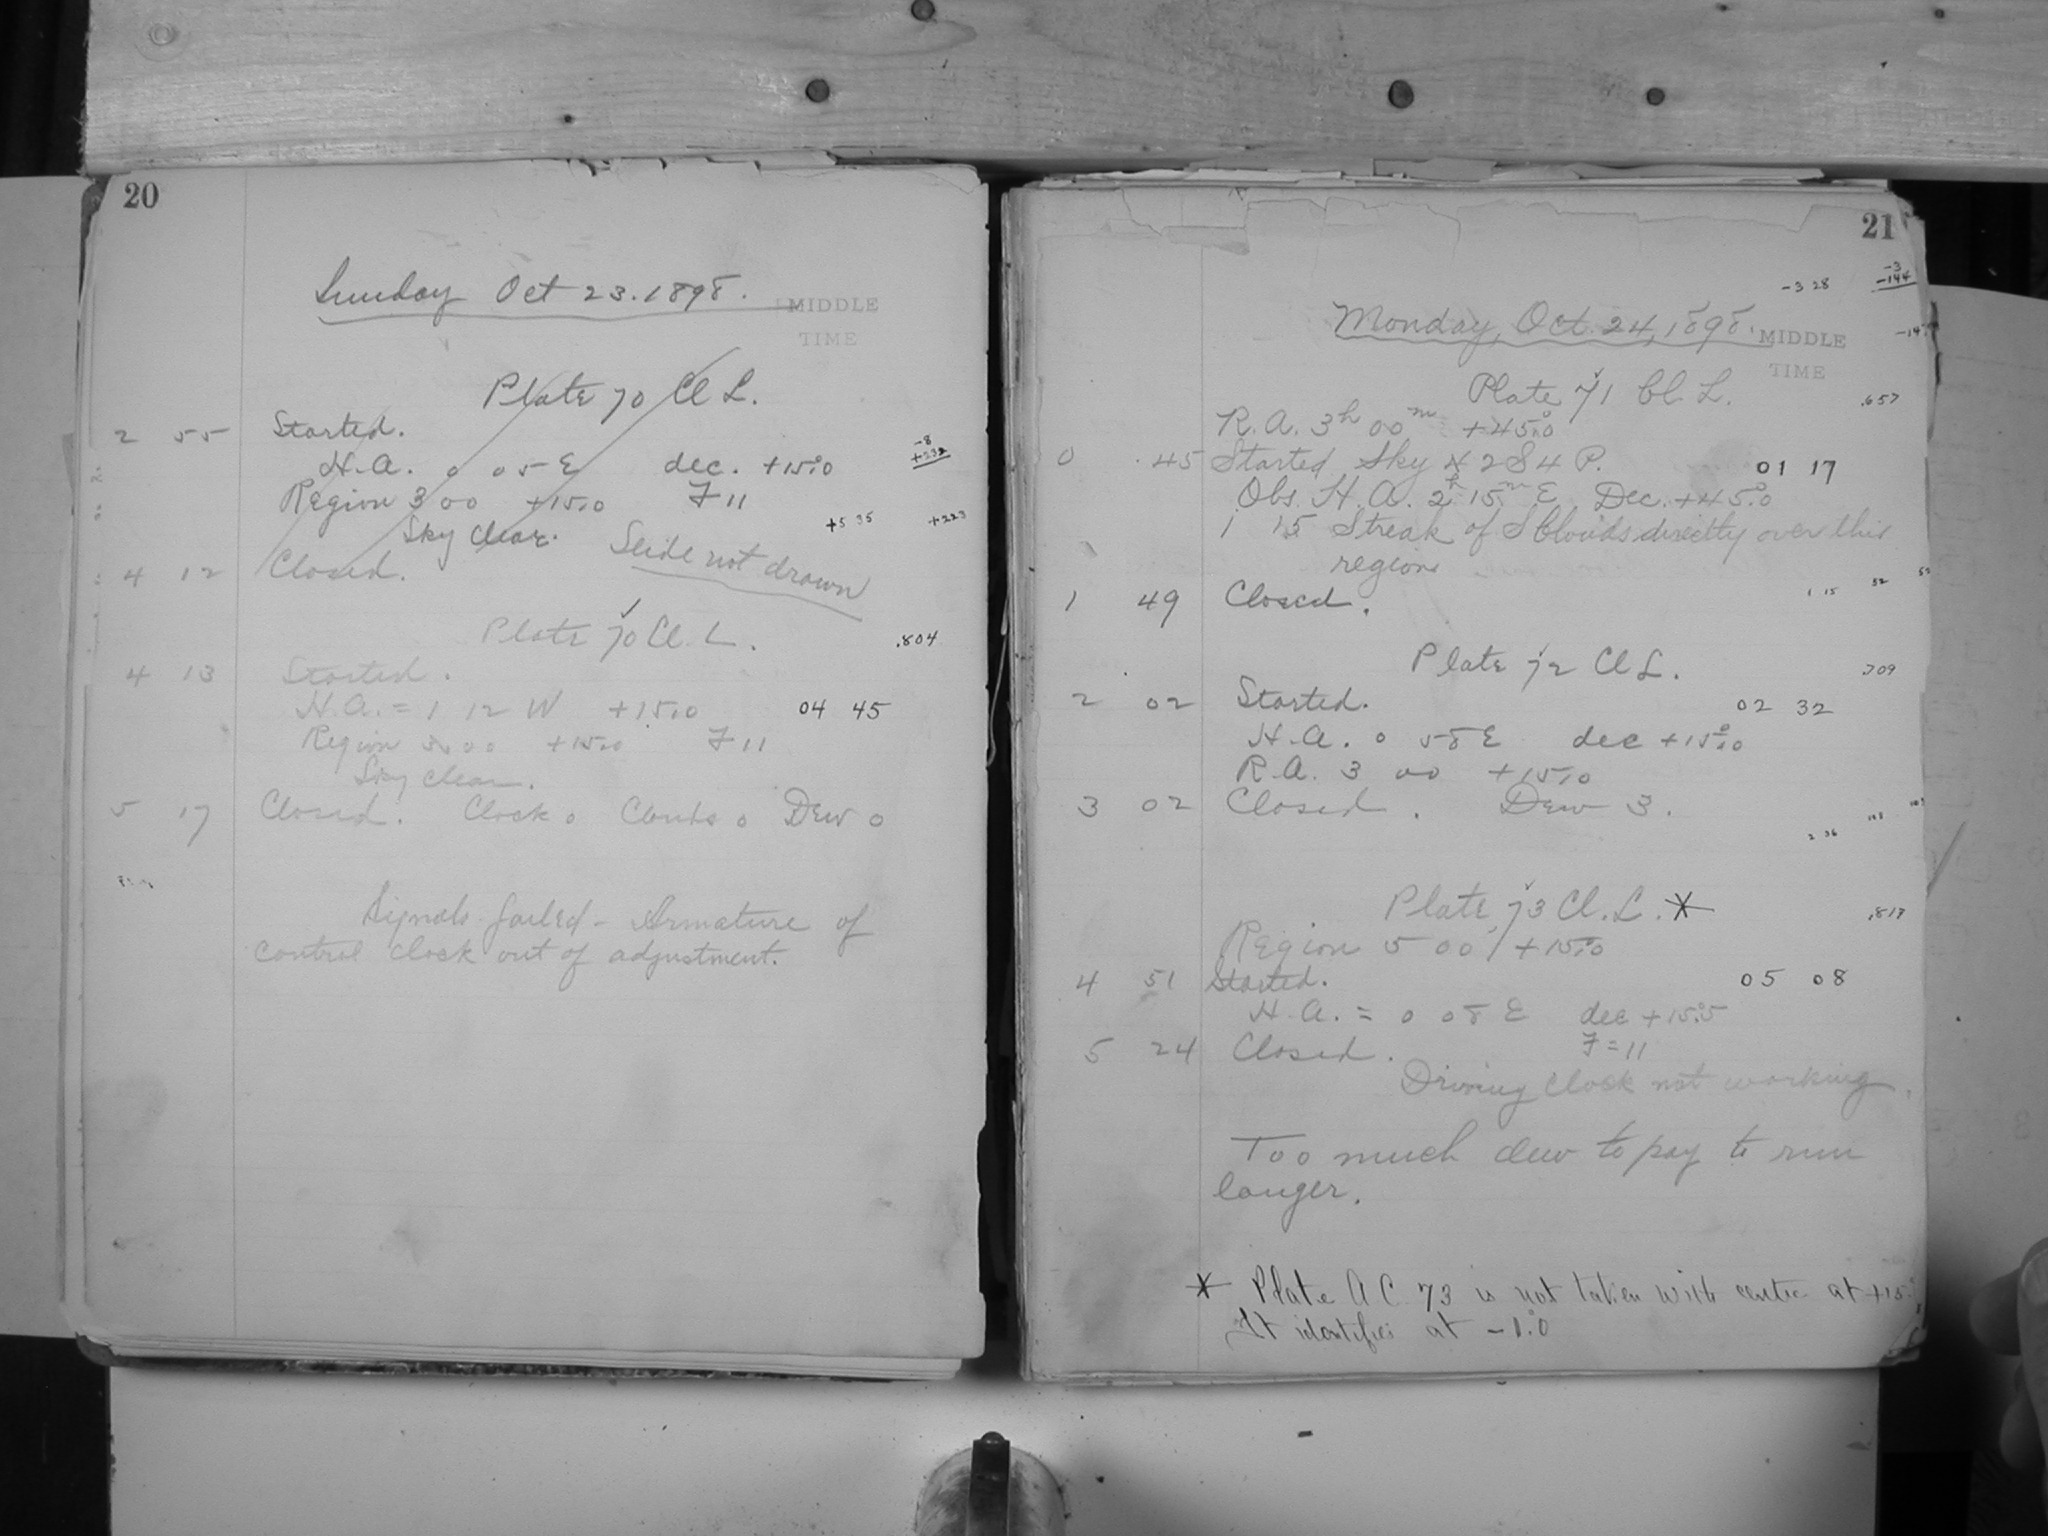 20
Sunday Oct 23. 1898.
MIDDLE
TIME
Plate 70 Cl L.
2 55 Started.
-8
+232
H.A. 0 05 E dec. +15°.0
Region 3 00 +15.0 F 11
+5 35 +223
Sky clear.
Slide not drawn
4 12 Closed.
Plate 70 Cl. L. .804
4 13 Started.
H.A. = 1 12 W +15.0 04 45
Region 3 00 +15.0 F 11
Sky clear.
5 17 Closed. Clock 0 Clouds 0 Dew 0
Signals failed - Armature of
control clock out of adjustment.
21
-3 28
-3
-144
Monday, Oct. 24, 1898.
MIDDLE
TIME
Plate 71 Cl. L. .657
R.A. 3h 00m +45°.0
0 45 Started Sky 4 2 S 4 P. 01 17
Obs. H.A. 2h 15m E Dec. +45°.0
1 15 Streak of S Clouds directly over this
region
1 15 52 52
1 49 Closed.
Plate 72 Cl L. .709
2 02 Started. 02 32
H.A. 0 58 E dec +15°.0
R.A. 3 00 +15.0
3 02 Closed. Dew 3.
2 36
Plate 73 Cl. L. * .817
Region 5 00 +15°.0
4 51 Started. 05 08
H.A. = 0 08 E dec +15°.5
5 24 Closed. F = 11
Driving Clock not working.
Too much dew to pay to run
longer.
* Plate A C 73 is not taken with centre at +15°.
It identifies at -1°.0